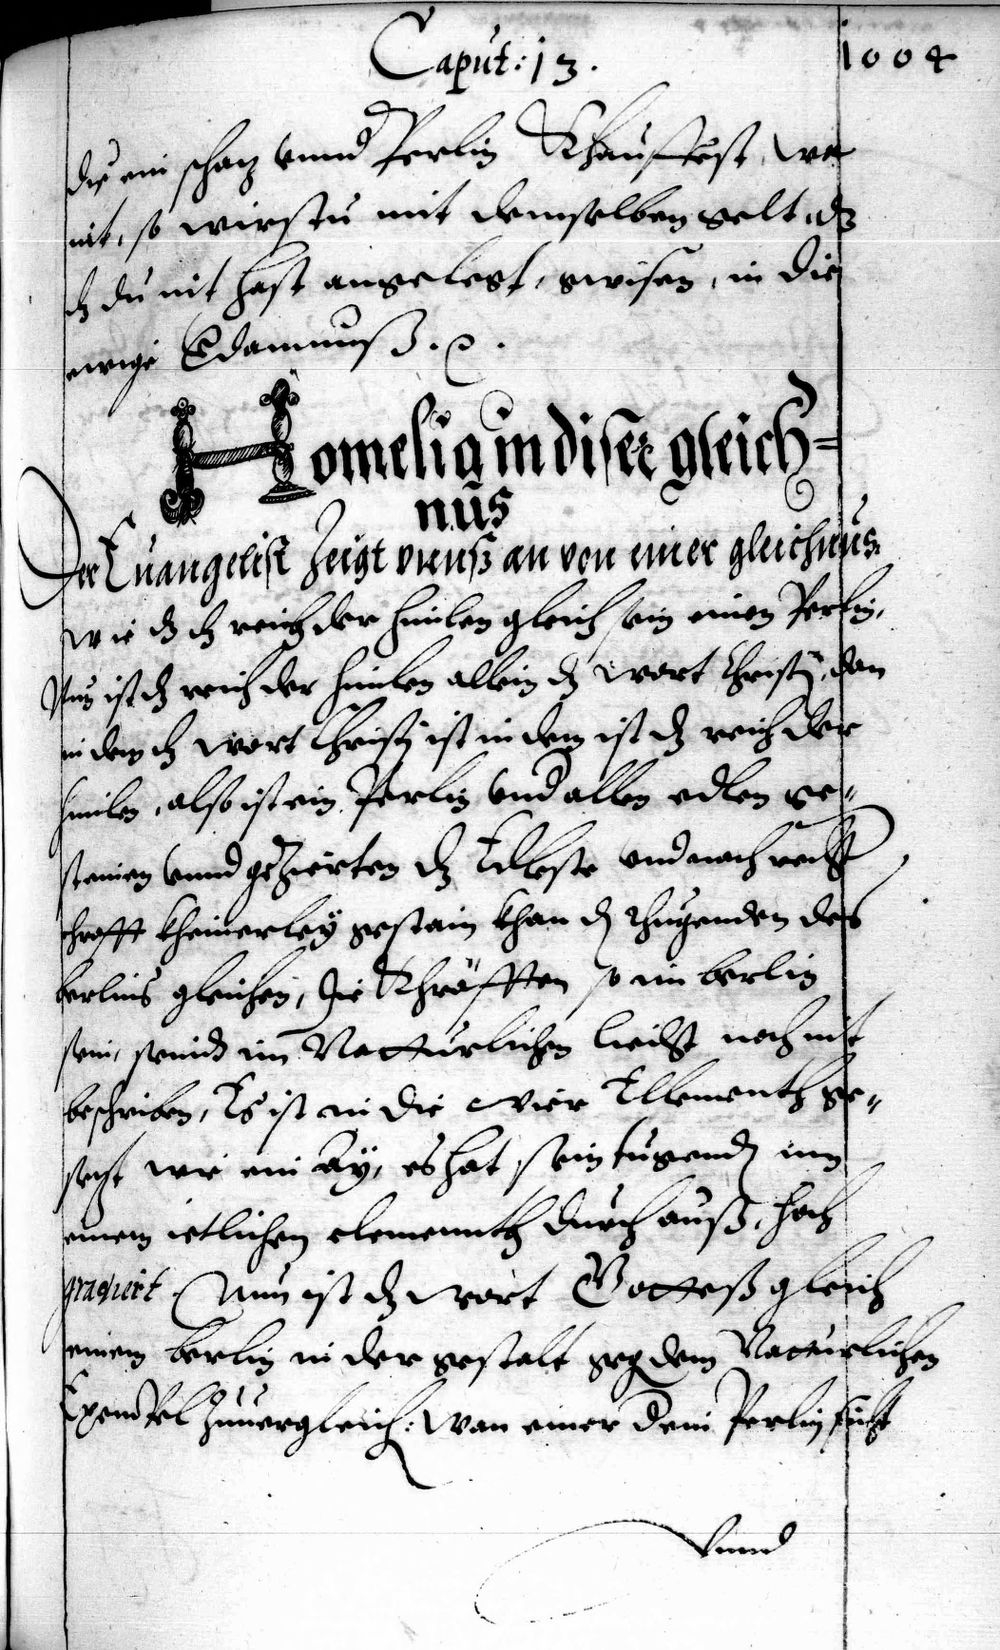 Caput: 13. 1004
die ein schaz vnnd Perlin Khauffest, wo
nit, so wirstu mit demselben gelt, dz
dz du nit hast angelegt, gwisen, in die
ewige Vdamnuß.
Homelia in diser gleich=
nus
Der Euangelist Zeigt vnnß an von einer gleichnus.
wie dz dz reich der himlen gleich sein einem Perlin,
Nun ist dz reich der himlen allein dz wort Christj, dan
in dem dz wort Christj ist in dem ist dz reich der
himlen, also ist ein Perlin vnd allen edlen ge=
steinen vnnd geZierten dz Edleste vnd nach
khrafft kheinerley gestain khan dz thugenden des
berlins gleichen, die Khräfften so im berlin
sein, seind im Natturlichen liecht noch nit
beschriben, Es ist in die vier Ellementh ge=
sezt wie ein Ay, es hat sein tugendt inn
einem ietlichen elementh durch auß, hoch
gradiert. Nun ist dz wort Gottess gleich
einem berlin in der gestalt geg dem Natturlichen
Exempel Zuuergleich: wan einer dem Perlin sicht
vnnd